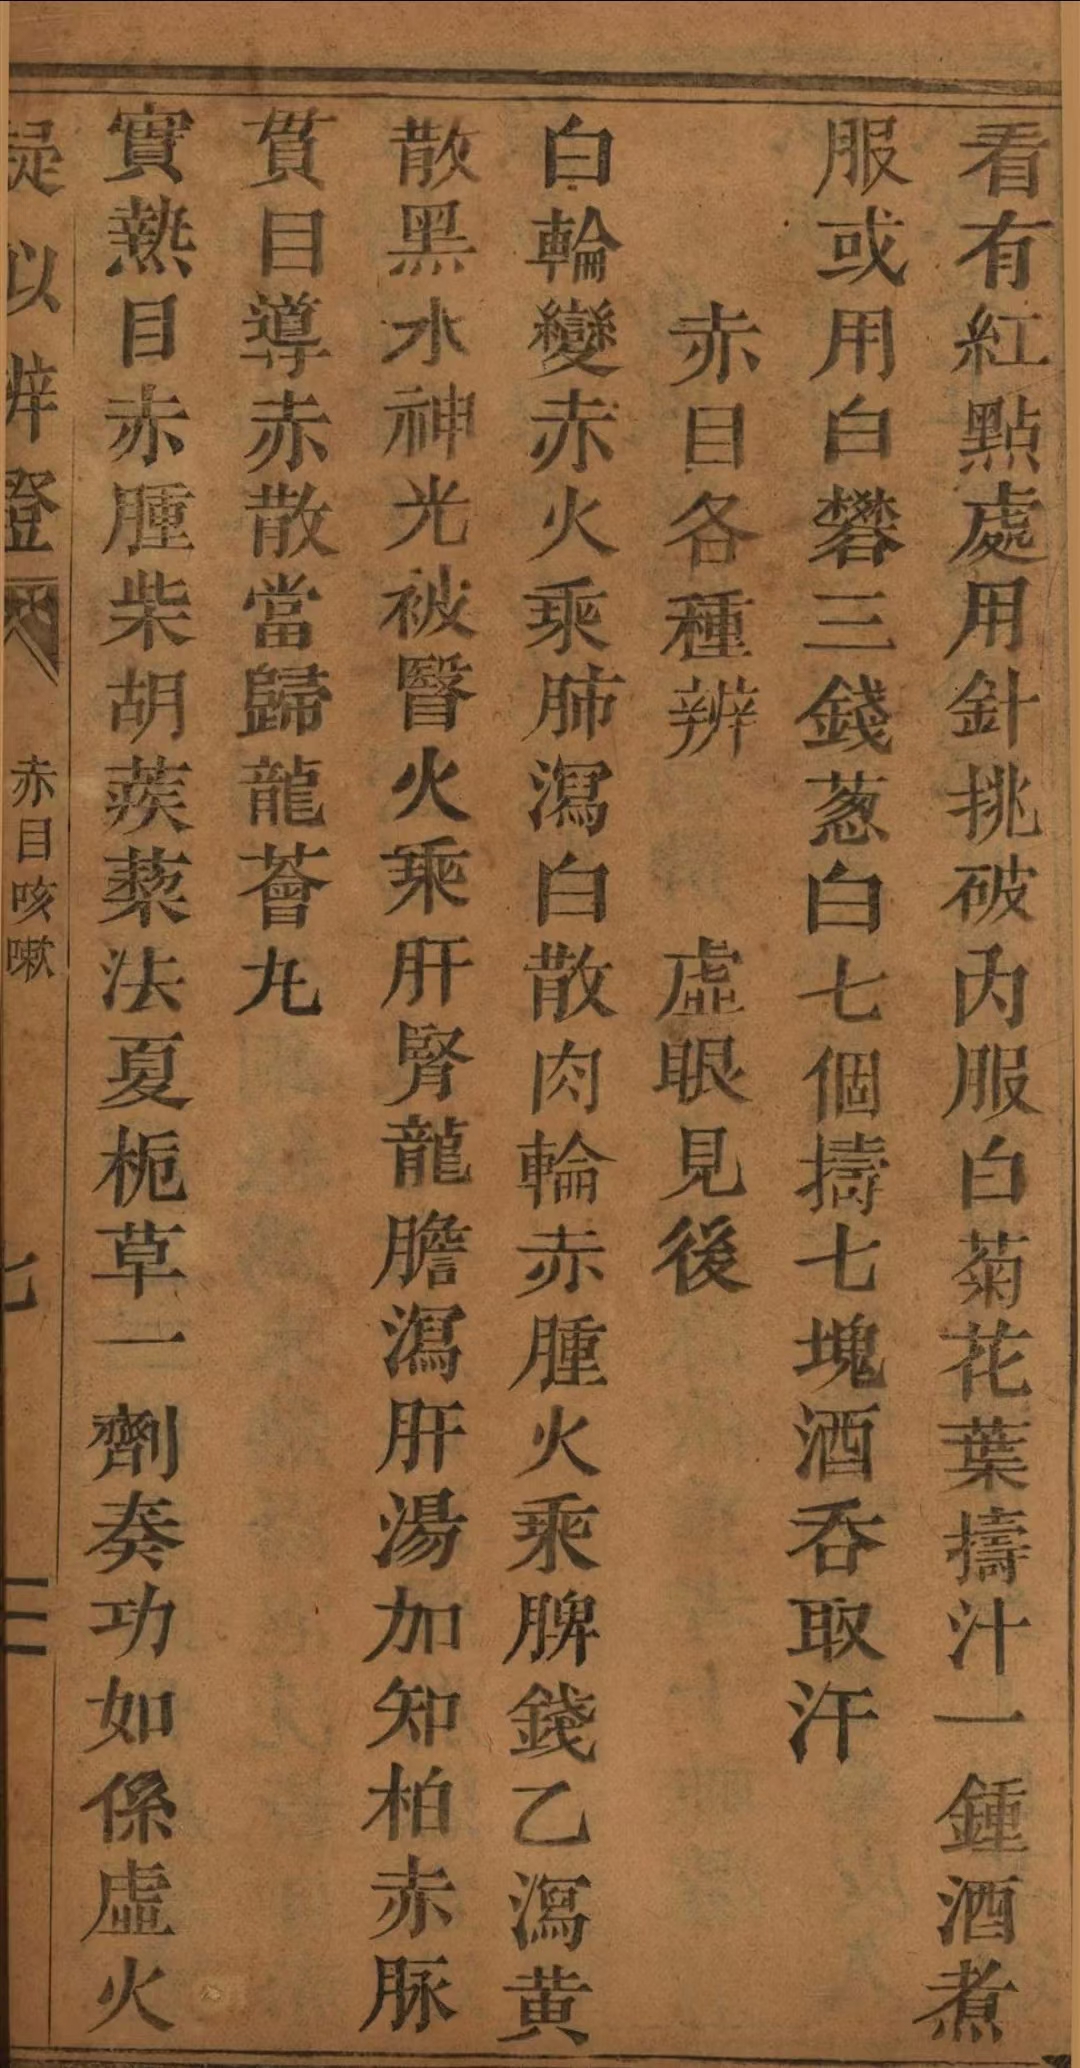 看有紅點處用針挑破內服白菊花葉擣汁一鍾酒煮
服或用白礬三錢葱白七個擣七塊酒吞取汗
赤目各種辨 虛眼見後
白輪變赤火乘肺瀉白散肉輪赤腫火乘脾錢乙瀉黄
散黑水神光被瞖火乘肝腎龍膽瀉肝湯加知柏赤脉
貫目導赤散當歸龍薈丸
實熱目赤腫柴胡蒺藜法夏梔草一劑奏功如係虛火
疑似辨證 赤目咳嗽 七 三